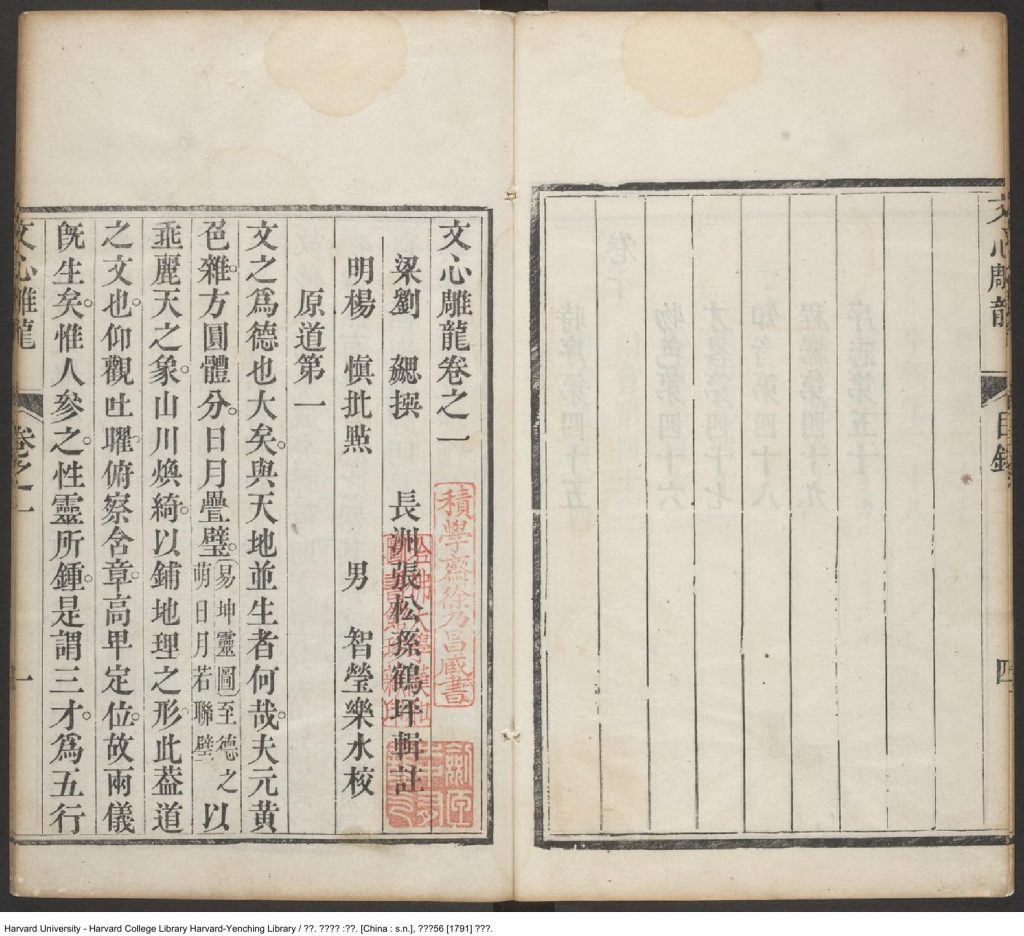 文心雕龍
目錄
四
文心雕龍卷之一
梁劉　勰撰　長洲張松孫鶴坪輯註
明楊　慎批點　男　智瑩樂水校
原道第一
文之爲德也大矣。與天地並生者何哉。夫元黃
色雜。方圓體分。日月疊璧。易坤靈圖至德之萌日月若聯璧以
垂麗天之象。山川煥綺。以鋪地理之形。此葢道
之文也。仰觀吐曜。俯察含章。高卑定位。故兩儀
旣生矣。惟人參之。性靈所鍾。是謂三才。爲五行
文心雕龍
卷之一
一
積學齋徐乃昌藏書
哈佛大學漢和圖書館珍藏印
Harvard University - Harvard College Library Harvard-Yenching Library / ??. ???? :??. [China : s.n.], ???56 [1791] ???.